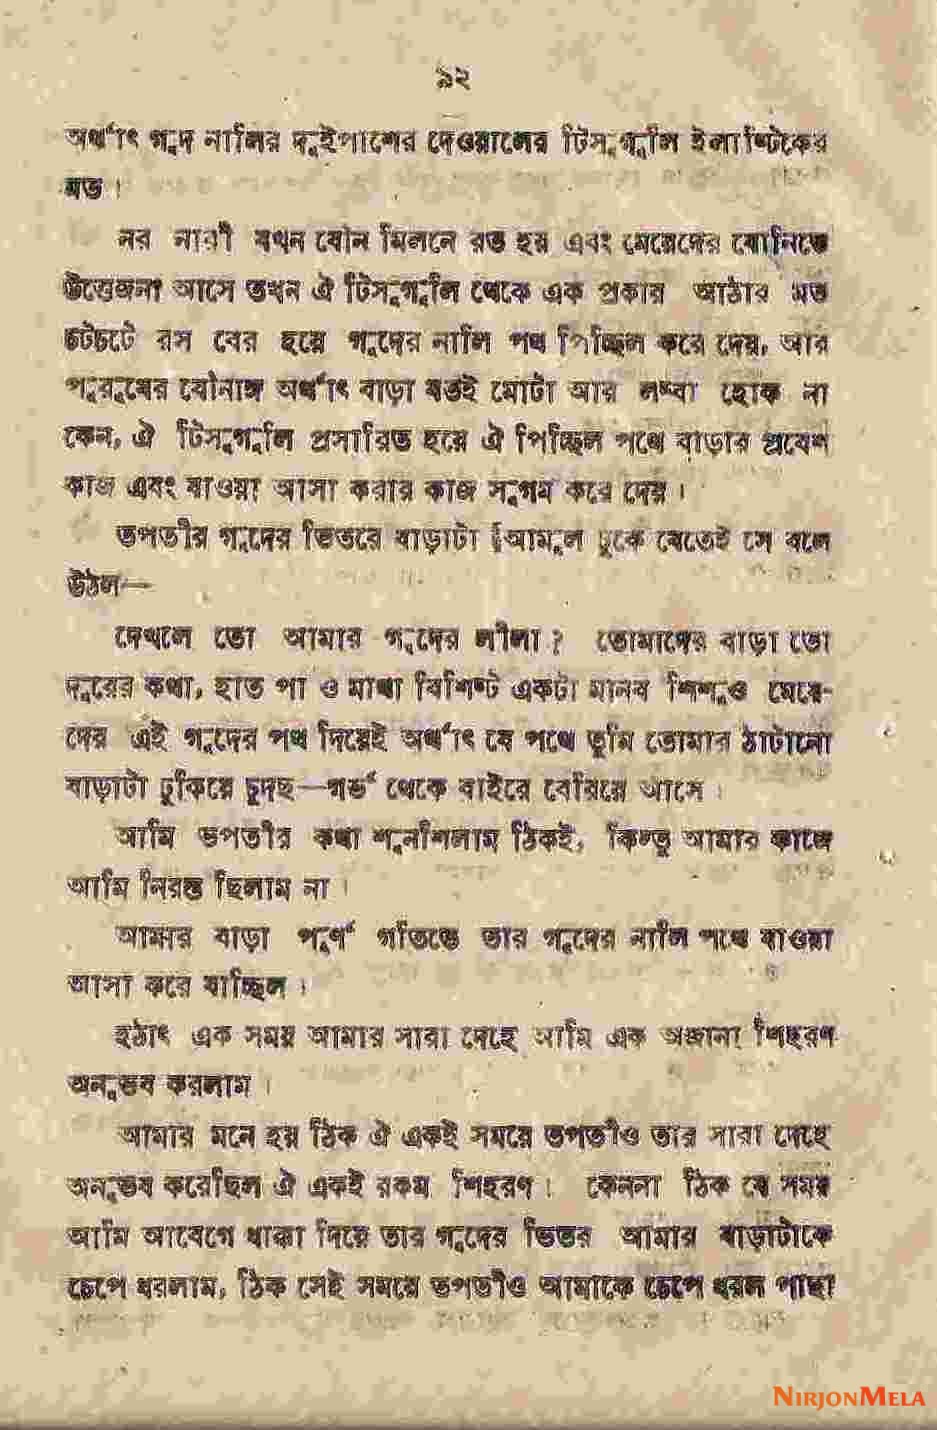 ৯২
অর্থাৎ গুদ নালির দুইপাশের দেওয়ালের টিসুগুলি ইলাষ্টিকের
মত।
নর নারী যখন যৌন মিলনে রত হয় এবং মেয়েদের যোনিতে
উত্তেজনা আসে তখন ঐ টিসুগুলি থেকে এক প্রকার আঠার মত
চটচটে রস বের হয়ে গুদের নালি পথ পিচ্ছিল করে দেয়, আর
পুরুষের যৌনাঙ্গ অর্থাৎ বাড়া যতই মোটা আর লম্বা হোক না
কেন, ঐ টিসুগুলি প্রসারিত হয়ে ঐ পিচ্ছিল পথে বাড়ার প্রবেশ
কাজ এবং যাওয়া আসা করার কাজ সুগম করে দেয়।
তপতীর গুদের ভিতরে বাড়াটা আমূল ঢুকে যেতেই সে বলে
উঠল—
দেখলে তো আমার গুদের লীলা? তোমাদের বাড়া তো
দূরের কথা, হাত পা ও মাথা বিশিষ্ট একটা মানব শিশুও মেয়ে-
দের এই গুদের পথ দিয়েই অর্থাৎ যে পথে তুমি তোমার ঠাটানো
বাড়াটা ঢুকিয়ে চুদছ—গর্ভ থেকে বাইরে বেরিয়ে আসে।
আমি তপতীর কথা শুনশিলাম ঠিকই, কিন্তু আমার কাজে
আমি নিরস্ত ছিলাম না।
আমার বাড়া পূর্ণ গতিতে তার গুদের নালি পথে যাওয়া
আসা করে যাচ্ছিল।
হঠাৎ এক সময় আমার সারা দেহে আমি এক অজানা শিহরণ
অনুভব করলাম।
আমার মনে হয় ঠিক ঐ একই সময়ে তপতীও তার সারা দেহে
অনুভব করেছিল ঐ একই রকম শিহরণ। কেননা ঠিক যে সময়
আমি আবেগে ধাক্কা দিয়ে তার গুদের ভিতর আমার বাড়াটাকে
চেপে ধরলাম, ঠিক সেই সময়ে তপতীও আমাকে চেপে ধরল পাছা
NIRJONMELA